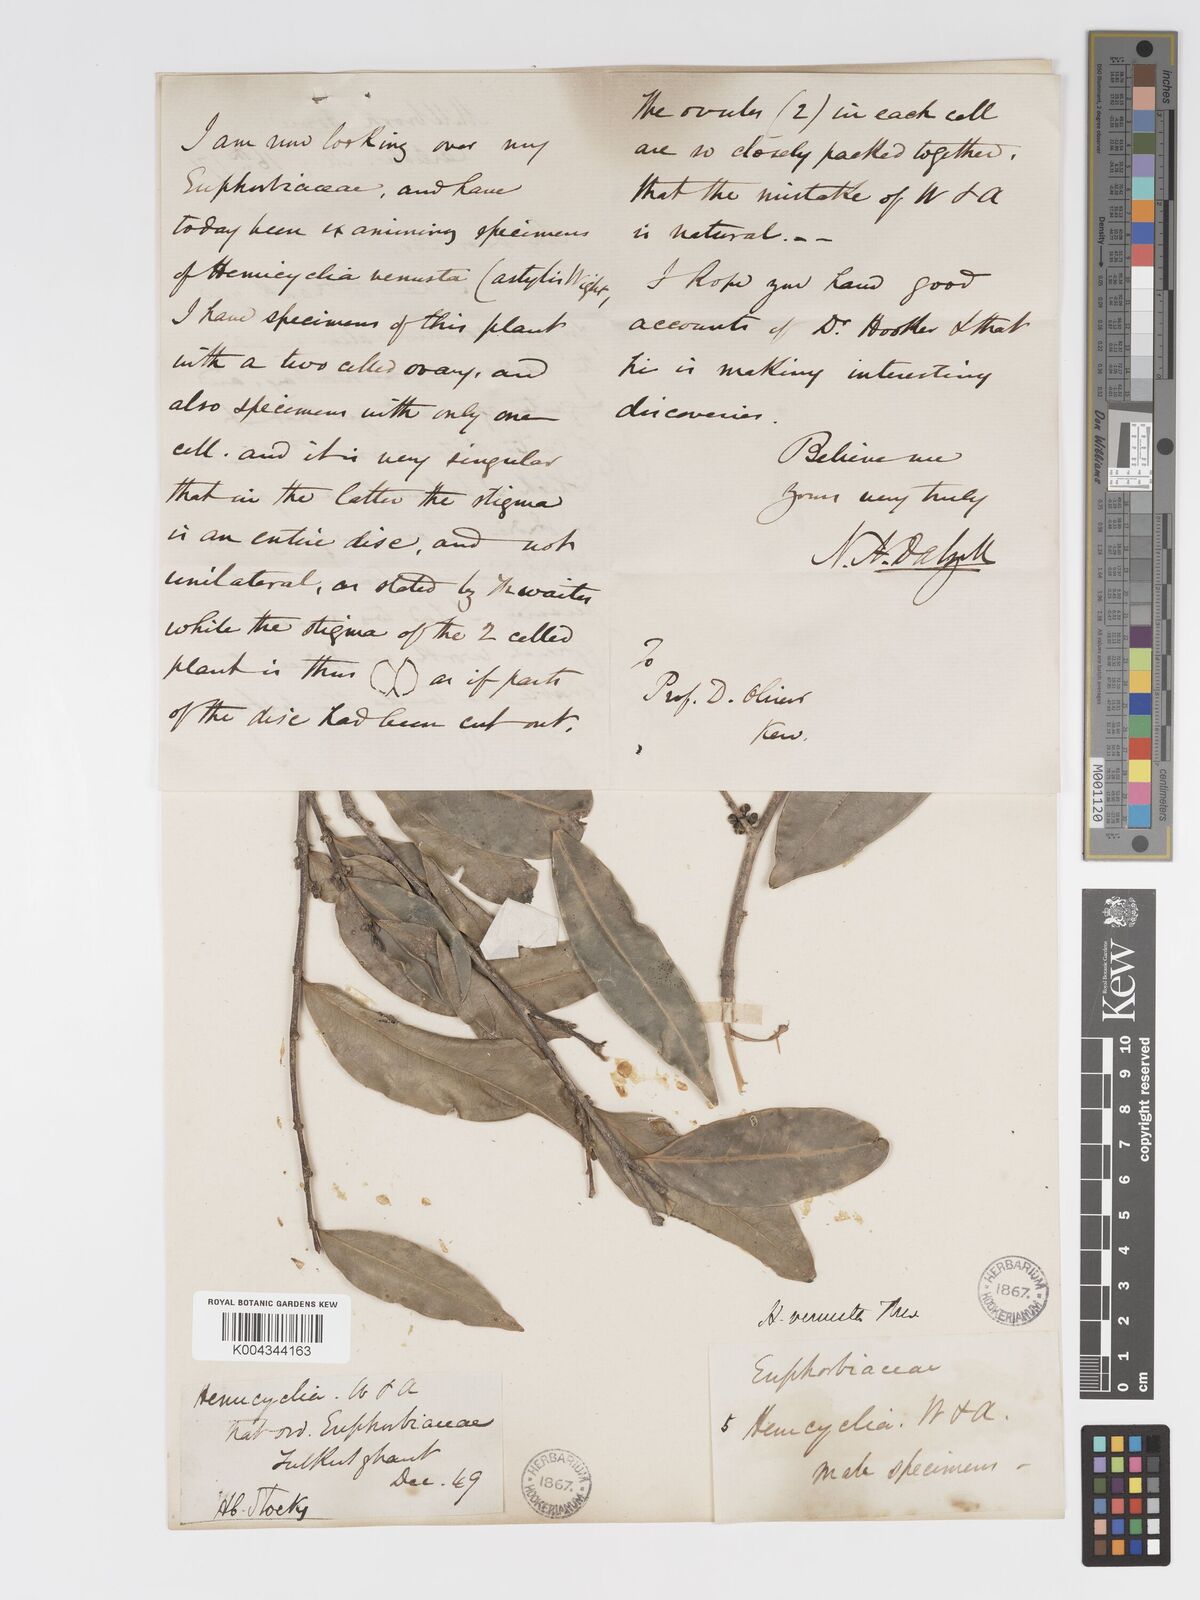 I am now looking over my
Euphorbiaceae, and have
today been examining specimens
of Hemicyclia venusta (astylis Wight,
I have specimens of this plant
with a two celled ovary, and
also specimens with only one
cell. and it is very singular
that in the latter the stigma
is an entire disc, and not
unilateral, as stated by Thwaites
while the stigma of the 2 celled
plant is thus as if parts
of the disc had been cut out.
The ovules (2) in each cell
are so closely packed together,
that the mistake of W & A
is natural. - -
I hope you have good
accounts of Dr Hooker & that
he is making interesting
discoveries.
Believe me
yours very truly
N. A. Dalzell
To
Prof. D. Oliver
Kew.
ROYAL BOTANIC GARDENS KEW
K004344163
Hemicyclia. W & A
Nat. ord. Euphorbiaceae
Tulkut ghaut
Dec. 49
Hb. Stocks
HERBARIUM
1867.
HOOKERIANUM
H. venusta Thw
HERBARIUM
1867.
HOOKERIANUM
Euphorbiaceae
5 Hemicyclia. W & A.
Male specimens -
inches
Density
Don Williams
M001120
centimeters
Kew
Royal Botanic Gardens
0 1 2 3 4 5 6 7 8 9 10
cm
copyright reserved